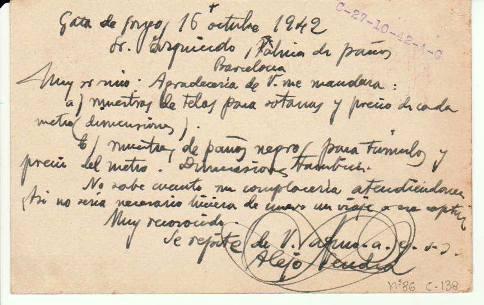 Gata de Gorgos, 16 octubre 1942
C-27-10-42-1-G
Sr. Izquierdo, Fábrica de paños
Barcelona
Muy sr mio: Agradeceria de V. me mandara:
a) muestras de telas para sotanas y precio de cada
metro (dimensiones).
b) muestras de paños negros para túmulos y
precio del metro. Dimensiones tambien.
No sabe cuanto me complaceria atendiendome
Asi no seria necesario hiciera de nuevo un viaje a esa
Muy reconocido
Se repite de V.
Alejo
nº86 C-138